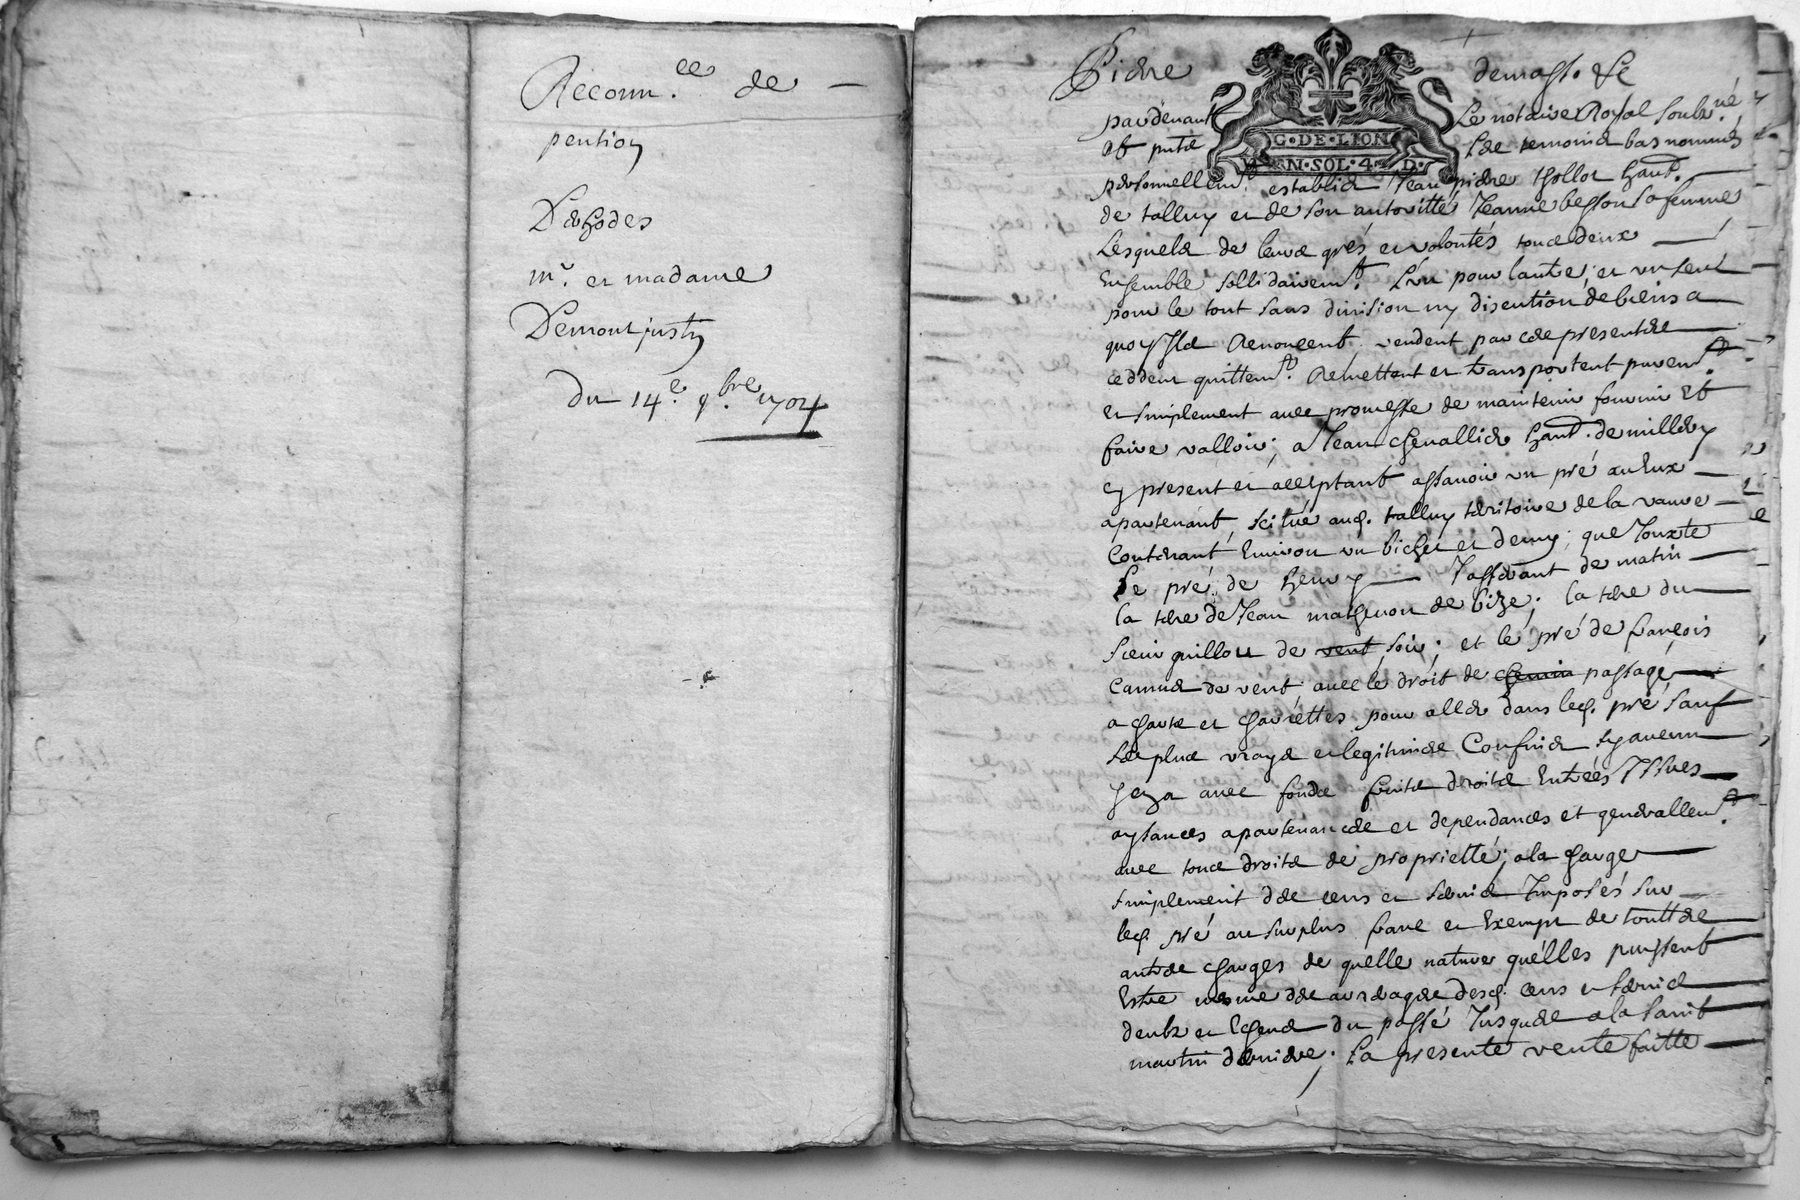 Reconn.ee de
pention
Derhodes
mr. et madame
Demontjustin
du 14e. 9.bre 1704
G·DE·LION
MEN·SOL·4·D·
pardevant Le notaire Royal soubz.né
et les temoins bas nommés
personnellemt. establis Jean piere thollot habt.
de talluy et de son autoritté Jeanne besson sa femme
Lesquels de leurs grés et volontés tous deux
Ensemble sollidairemt. L'un pour lautre et un seul
pour le tout sans division ny discution de biens a
quoy Ils Renoncent vendent par ces presentes
ceddent quittent Remettent et transportent puremt.
et simplement avec promesse de maintenir fournir Et
faire valloir; a Jean chevallier habt. de millery
cy present et acceptant assavoir un pré a Eux
apartenant, scitué aud. talluy teritoire de la vaure
Contenant Environ un bichet et demy; que Jouxte
Le pré de henry Tasserant de matin
la tere de Jean mathevon de bize; la tere du
sieur guillon de vent soir; et le pré de françois
Camus de vent avec le droit de chemin passage
a chars et charettes pour aller dans led. pré sauf
Les plus vrays et legitimes Confins sy aucun
y en a avec fonds fruits droits Entrées Issues
aysances apartenances et dependances et generallemt.
avec tous droits de proprietté; a la charge
simplement des cens et servis Imposés sur
led. pré au surplus franc et Exempt de touttes
autres charges de quelle nature quelles puissent
Estre mesme des arrerages desd. cens et servis
deubz et Echeus du passé Jusques a la saint
martin derniere; La presente vente faitte